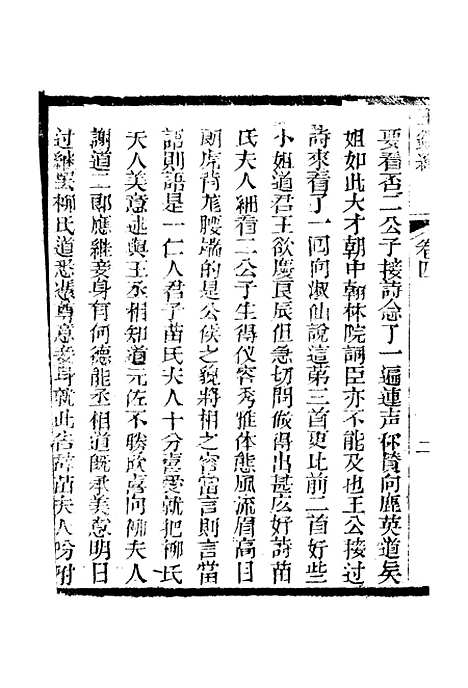 要看否二公子接詩念了一遍連声称賛向麗英道矣
姐如此大才朝中翰林院詞臣亦不能及也王公接过
詩來看了一回向淑仙說這第三首更比前二首好些
小姐道君王欲慶良辰但急切間候得出甚庅好詩苗
氏夫人細看二公子生得仪容秀雅体態風流眉高目
朗虎背熊腰端的是公侯之貌將相之容當言則言當
語則語是一仁人君子苗氏夫人十分喜愛就把柳氏
夫人美意述與王丞相知道元佐不勝欣喜向柳夫人
謝道二郎應継妾身有何德能丞相道既承美意明日
过継罢柳氏道悉遵尊意妾身就此告辞苗夫人吩咐
卷四
二